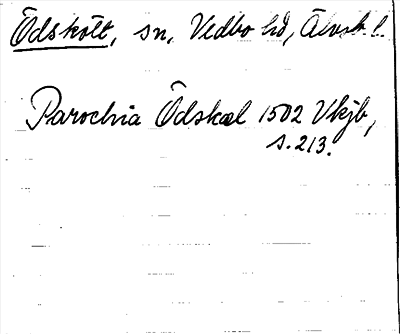 Ödskölt, sn, Vedbo hd, Älvsb. l.
Parochia Ödskæl 1502 Vkjb,
s. 213.